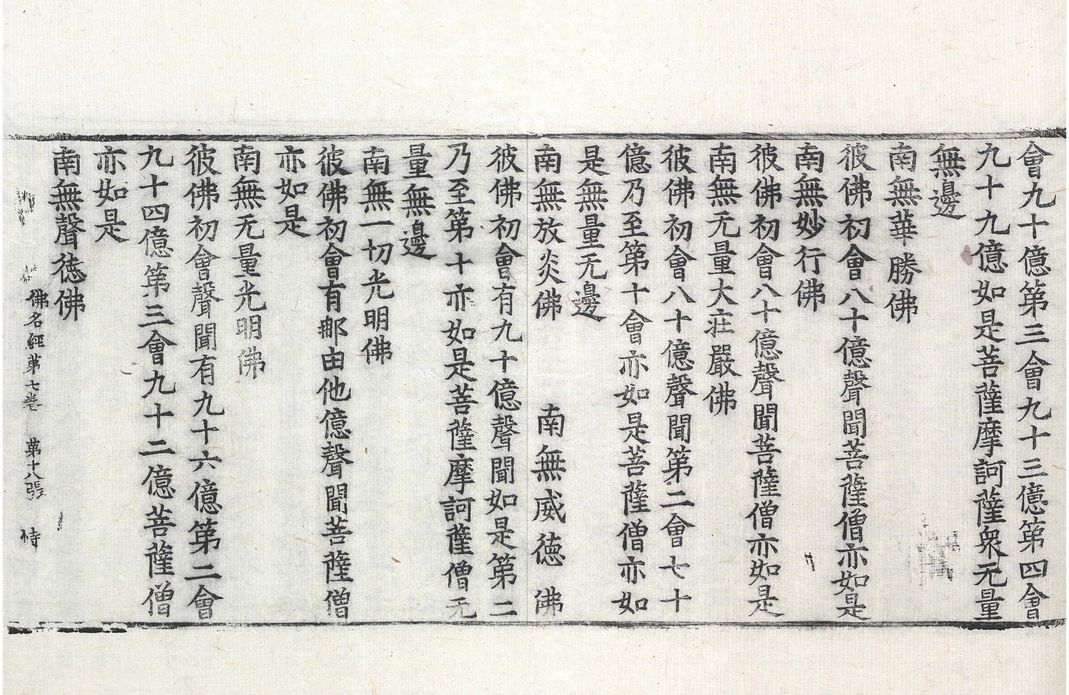 會九十億第三會九十三億第四會
九十九億如是菩薩摩訶薩衆无量
無邊
南無華勝佛
彼佛初會八十億聲聞菩薩僧亦如是
南無妙行佛
彼佛初會八十億聲聞菩薩僧亦如是
南無无量大庄嚴佛
彼佛初會八十億聲聞第二會七十
億乃至第十會亦如是菩薩僧亦如
是無量无邊
南無放炎佛 南無威徳佛
彼佛初會有九十億聲聞如是第二
乃至第十亦如是菩薩摩訶薩僧无
量無邊
南無一切光明佛
彼佛初會有那由他億聲聞菩薩僧
亦如是
南無无量光明佛
彼佛初會聲聞有九十六億第二會
九十四億第三會九十二億菩薩僧
亦如是
南無聲徳佛
佛名經第七卷 第十八張 恃